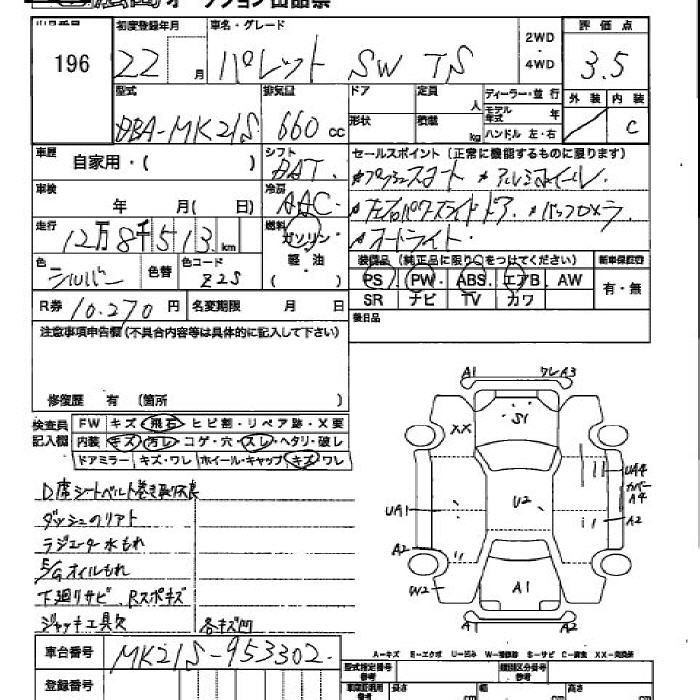 オークション出品票
初度登録年月 車名・グレード 2WD ・ 4WD 評価点
196 22 月 パレット SW TS 3.5
型式 排気量 ドア 定員 人 ディーラー・並行 外装 内装
DBA-MK21S 660 cc 形状 積載 kg モデル年式 年 ハンドル 左・右 C
車歴 自家用・( ) シフト AT. セールスポイント(正常に機能するものに限ります)
車検 年 月( 日) 冷房 AAC. プッシュスタート アルミホイール.
走行 12万8千513. km 燃料 ガソリン 左パワースライドドア. バックカメラ.
軽油 オートライト.
色 シルバー 色替 色コード Z2S 装備品(純正品に限り○をつけてください) 新車保証書
PS PW. ABS. エアB. AW 有・無
R券 10.270 円 名変期限 月 日 SR ナビ TV カワ
注意事項申告欄(不具合内容等は具体的に記入して下さい) 後日品
修復歴 有 (箇所 )
検査員記入欄 FW キズ・飛石・ヒビ割・リペア跡・X要
内装 キズ・汚レ・コゲ・穴・スレ・ヘタリ・破レ
ドアミラー キズ・ワレ ホイール・キャップ キズ・ワレ
A1 ワレA3
XX S1
UA4 カバー A4
UA1 U2 A2
A2
W2 A1
A1 A2
D席シートベルト巻き取り不良
ダッシュのリアト
ラジエーター水もれ
E/Gオイルもれ
下廻りサビ. Rスポキズ
ジャッキ工具欠 各キズ凹
A-キズ E-エクボ U-凹み W-補修跡 S-サビ C-腐食 XX-交換済
車台番号 MK21S-953302.
型式指定番号 参考 類別区分番号 参考
登録番号 長さ cm 幅 cm 高さ cm